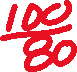 100
80